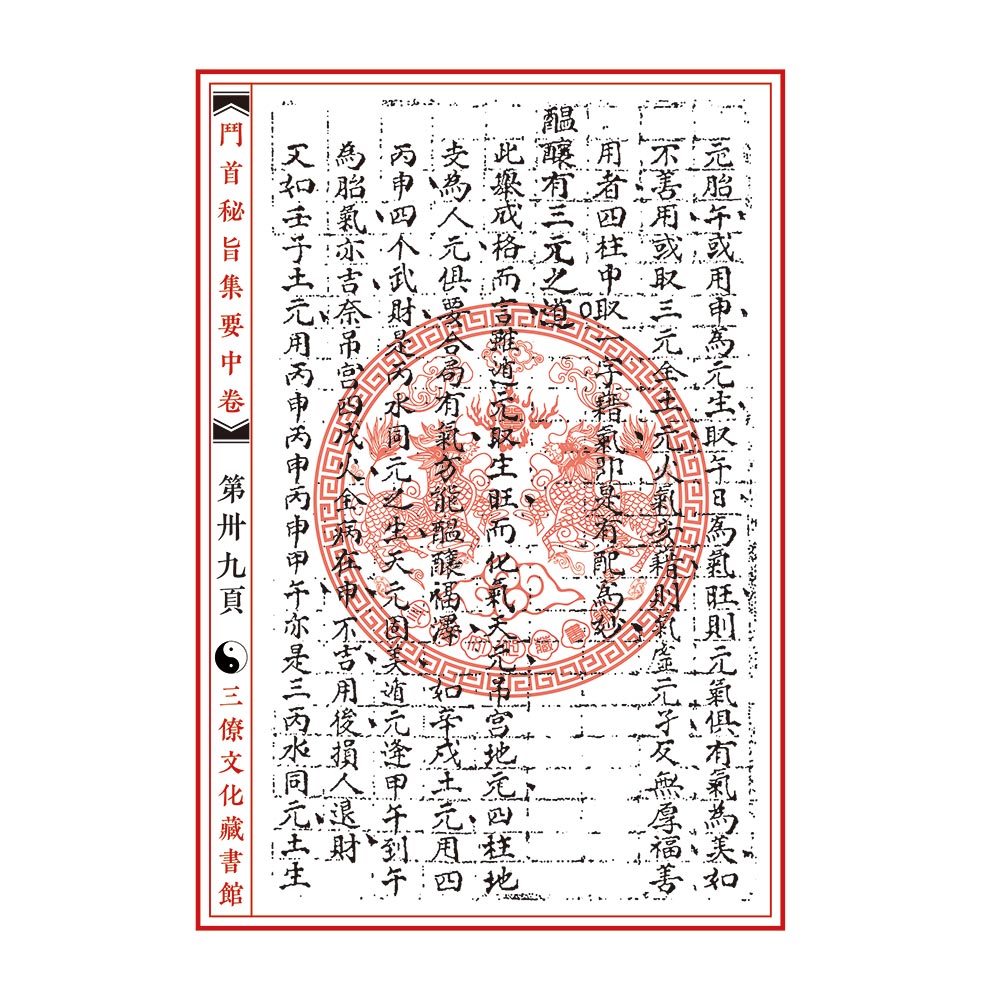 元胎午或用申為元生取午日為氣旺則元氣俱有氣為美如
不善用或取三元全土元火氣亥藉則氣虛元孑反無厚福善
用者四柱中取一字藉氣即是有配為妙
醖釀有三元之道
此舉成格而言雖遁元取生旺而化氣天元吊宮地元四柱地
支為人元俱要合局有氣方能醖釀福澤如辛戌土元用四
丙申四个武財是丙水同元之生天元固美遁元逢甲午到午
為胎氣亦吉奈吊宮四戊火全病在申不吉用後損人退財
又如壬子土元用丙申丙申丙申甲午亦是三丙水同元土生
鬥首秘旨集要中卷
第卅九頁
三僚文化藏書館